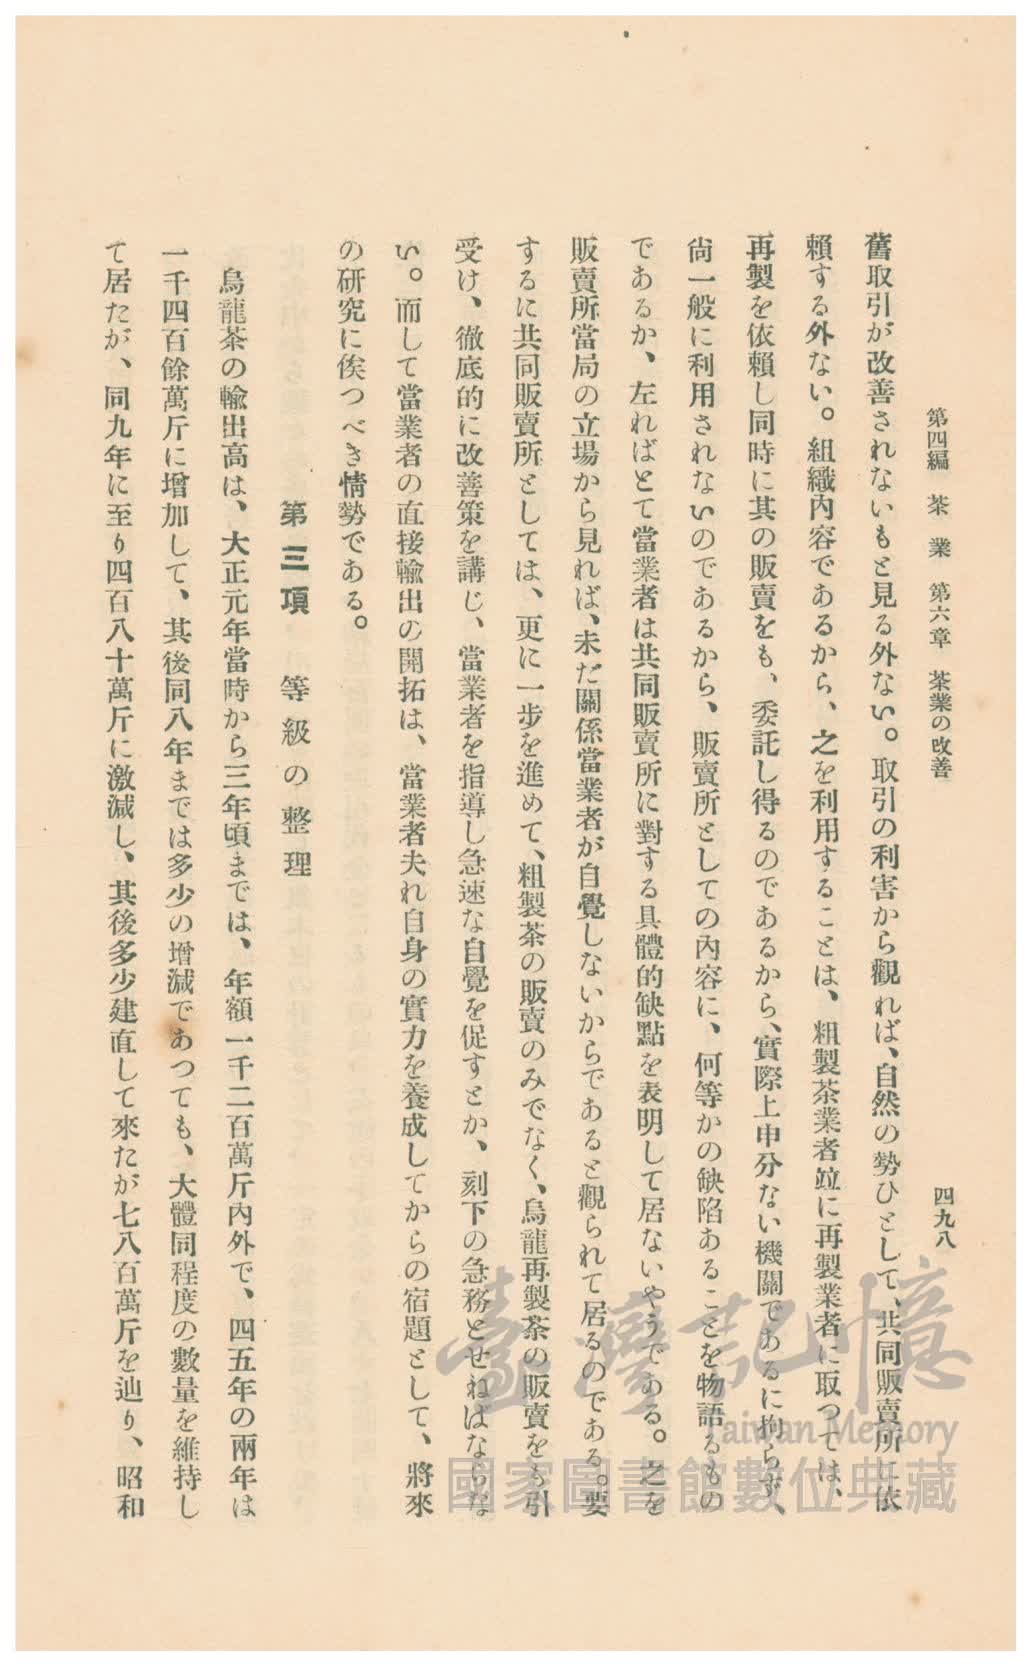 第四編　茶業　第六章　茶業の改善　四九八
舊取引が改善されないもと見る外ない。取引の利害から觀れば、自然の勢ひとして、共同販賣所に依
賴する外ない。組織內容であるから、之を利用することは、粗製茶業者竝に再製業者に取つては、
再製を依賴し同時に其の販賣をも、委託し得るのであるから、實際上申分ない機關であるに拘らず、
尙一般に利用されないのであるから、販賣所としての內容に、何等かの缺陷あることを物語るもの
であるか、左ればとて當業者は共同販賣所に對する具體的缺點を表明して居ないやうである。之を
販賣所當局の立場から見れば、未だ關係當業者が自覺しないからであると觀られて居るのである。要
するに共同販賣所としては、更に一步を進めて、粗製茶の販賣のみでなく、烏龍再製茶の販賣をも引
受け、徹底的に改善策を講じ、當業者を指導し急速な自覺を促すとか、刻下の急務とせねばならな
い。而して當業者の直接輸出の開拓は、當業者夫れ自身の實力を養成してからの宿題として、將來
の硏究に俟つべき情勢である。
第三項　等級の整理
烏龍茶の輸出高は、大正元年當時から三年頃までは、年額一千二百萬斤內外で、四五年の兩年は
一千四百餘萬斤に增加して、其後同八年までは多少の增減であつても、大體同程度の數量を維持し
て居たが、同九年に至り四百八十萬斤に激減し、其後多少建直して來たが七八百萬斤を辿り、昭和
臺灣記憶
Taiwan Memory
國家圖書館數位典藏